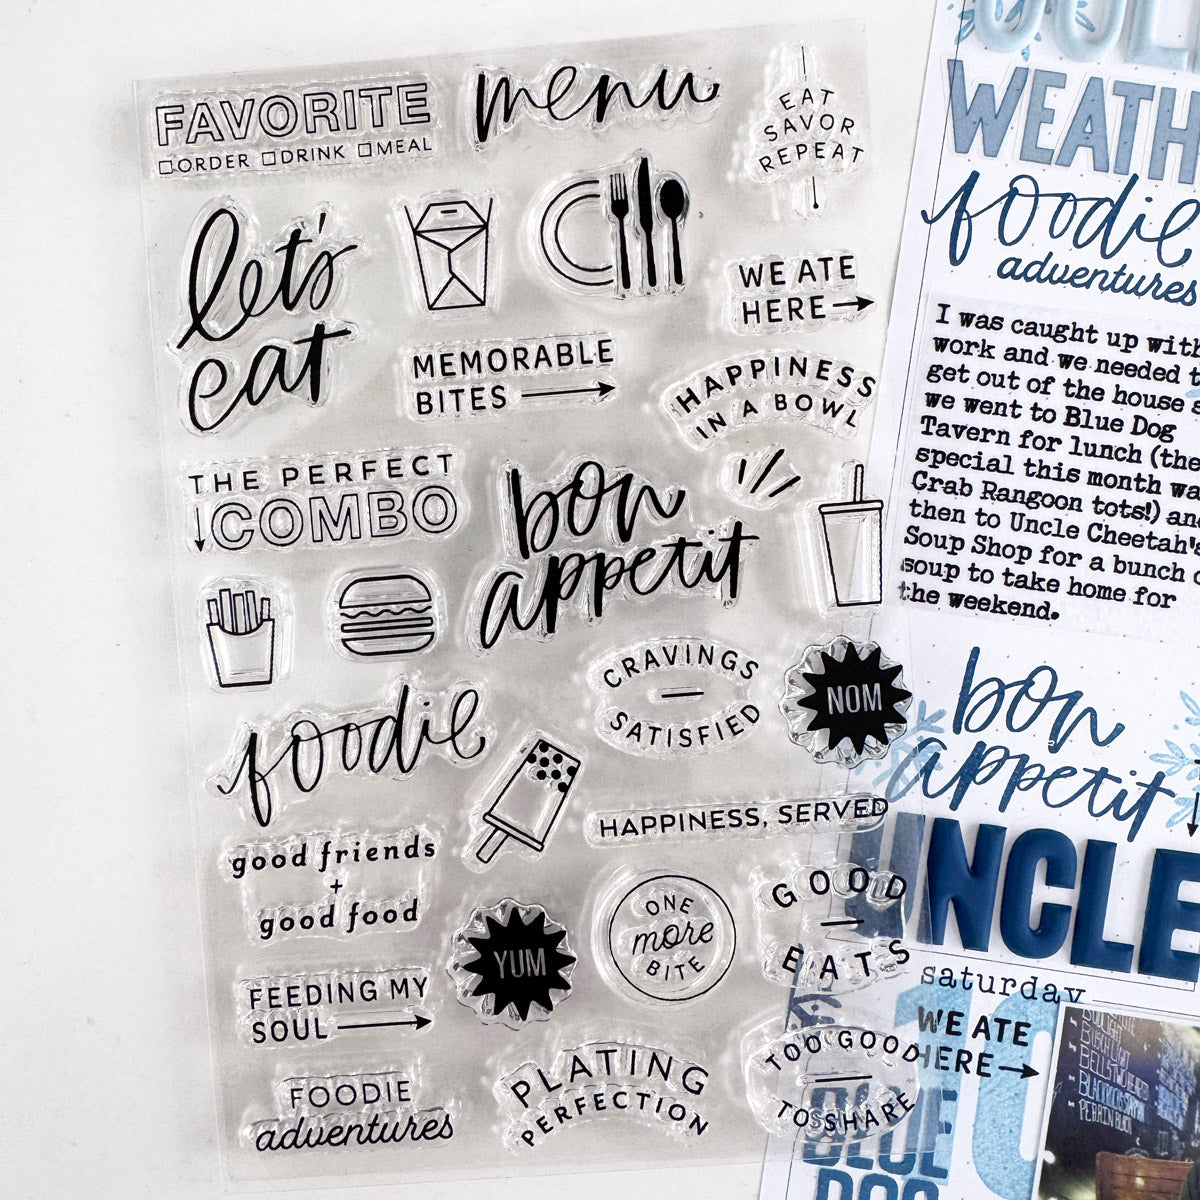 FAVORITE
☐ORDER ☐DRINK ☐MEAL
menu
EAT
SAVOR
REPEAT
let's
eat
WE ATE
HERE→
MEMORABLE
BITES→
HAPPINESS
IN A BOWL
THE PERFECT
↓COMBO
bon
appetit
foodie
CRAVINGS
—
SATISFIED
NOM
HAPPINESS, SERVED
good friends
+
good food
YUM
ONE
more
BITE
GOOD
—
EATS
FEEDING MY
SOUL→
FOODIE
adventures
PLATING
PERFECTION
TOO GOOD
—
TO SHARE
foodie
adventures
I was caught up with
work and we needed
get out of the house
we went to Blue Dog
Tavern for lunch (the
special this month
Crab Rangoon tots!)
then to Uncle Cheetah's
Soup Shop for a bunch
soup to take home for
the weekend.
bon
appetit
UNCLE
saturday
10
WE ATE
HERE→
BLUE
DOG